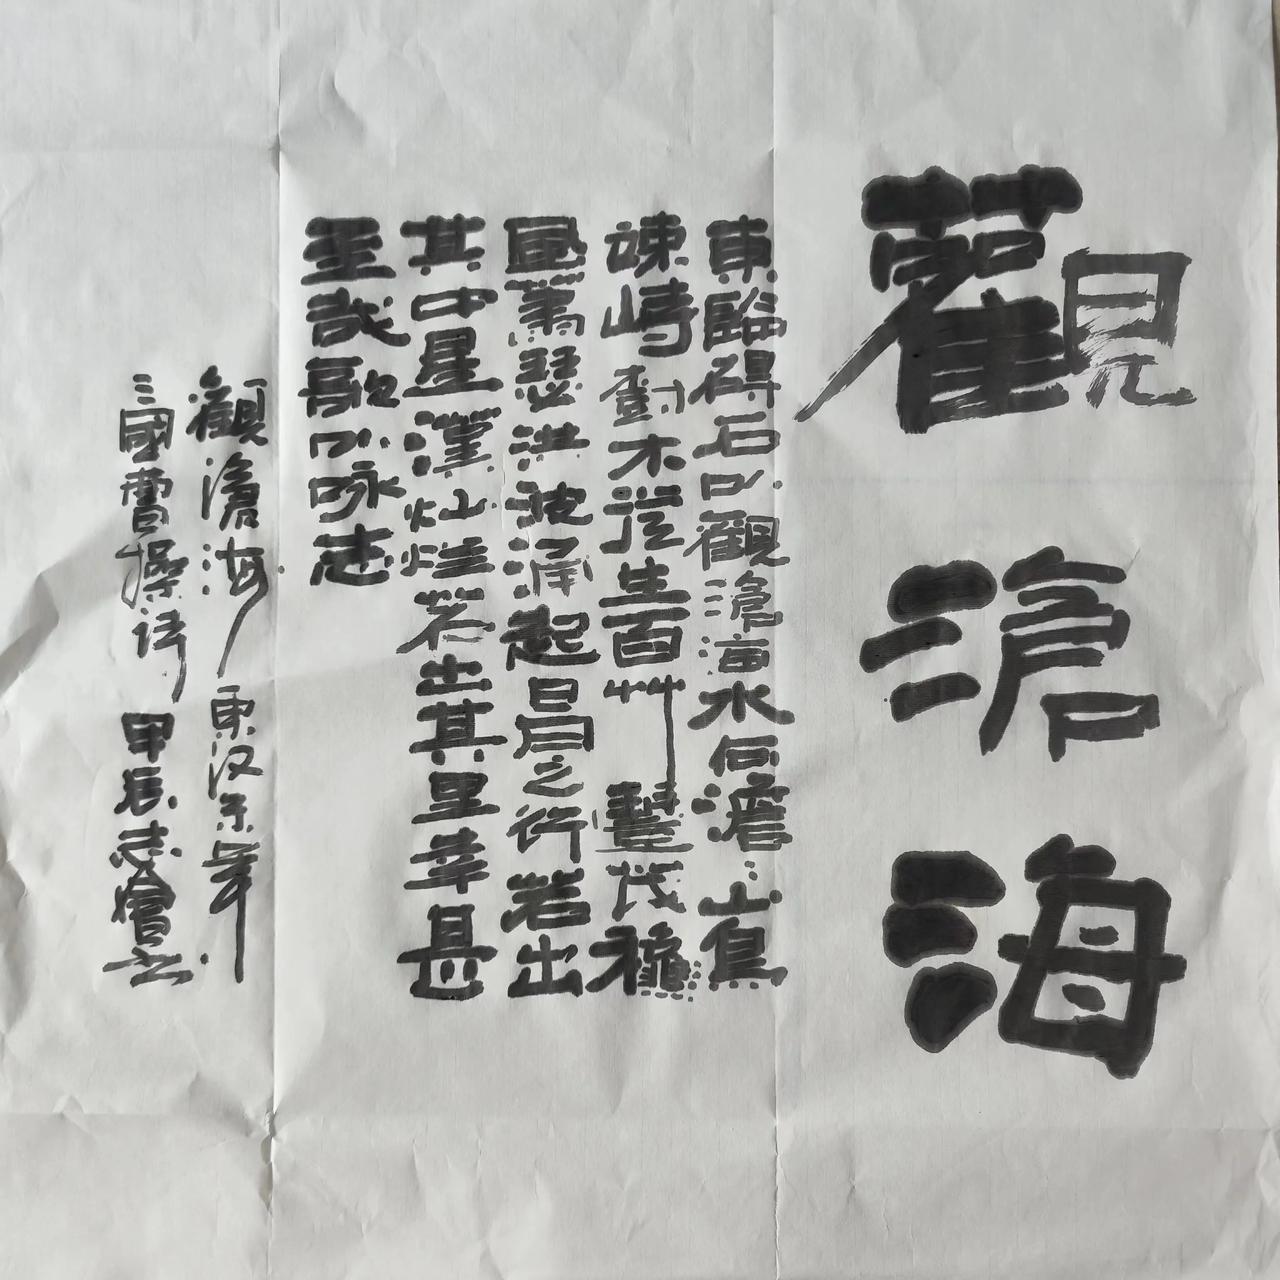 觀滄海
東臨碣石以觀滄海水何澹〻山島
竦峙樹木叢生百艸豐茂穐
風蕭瑟洪波涌起日月之行若出
其中星漢灿烂若出其里幸甚
至哉歌以咏志
觀滄海東汉末年
三國曹操诗甲辰志